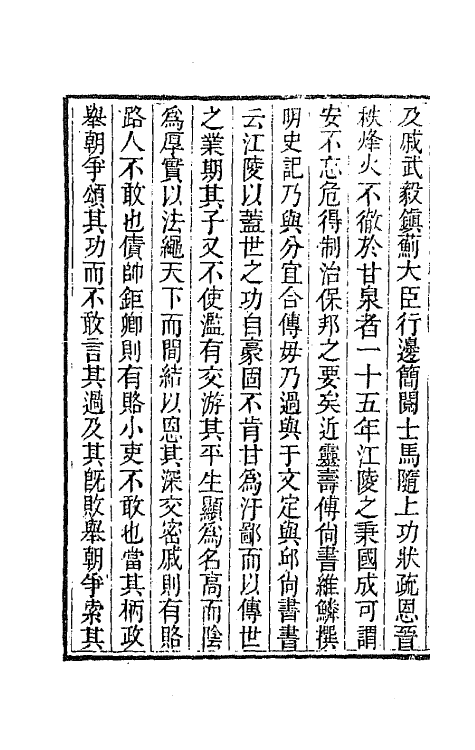 及戚武毅鎮薊大臣行邊簡閱士馬隨上功狀疏恩晉
秩烽火不徹於甘泉者一十五年江陵之秉國成可謂
安不忘危得制治保邦之要矣近靈壽傅尙書維鱗撰
明史記乃與分宜合傳毋乃過與于文定與邱尙書書
云江陵以蓋世之功自豪固不肯甘爲汙鄙而以傳世
之業期其子又不使濫有交游其平生顯爲名高而陰
爲厚實以法繩天下而間結以恩其深交密戚則有賂
路人不敢也債帥鉅卿則有賂小吏不敢也當其柄政
舉朝爭頌其功而不敢言其過及其旣敗舉朝爭索其